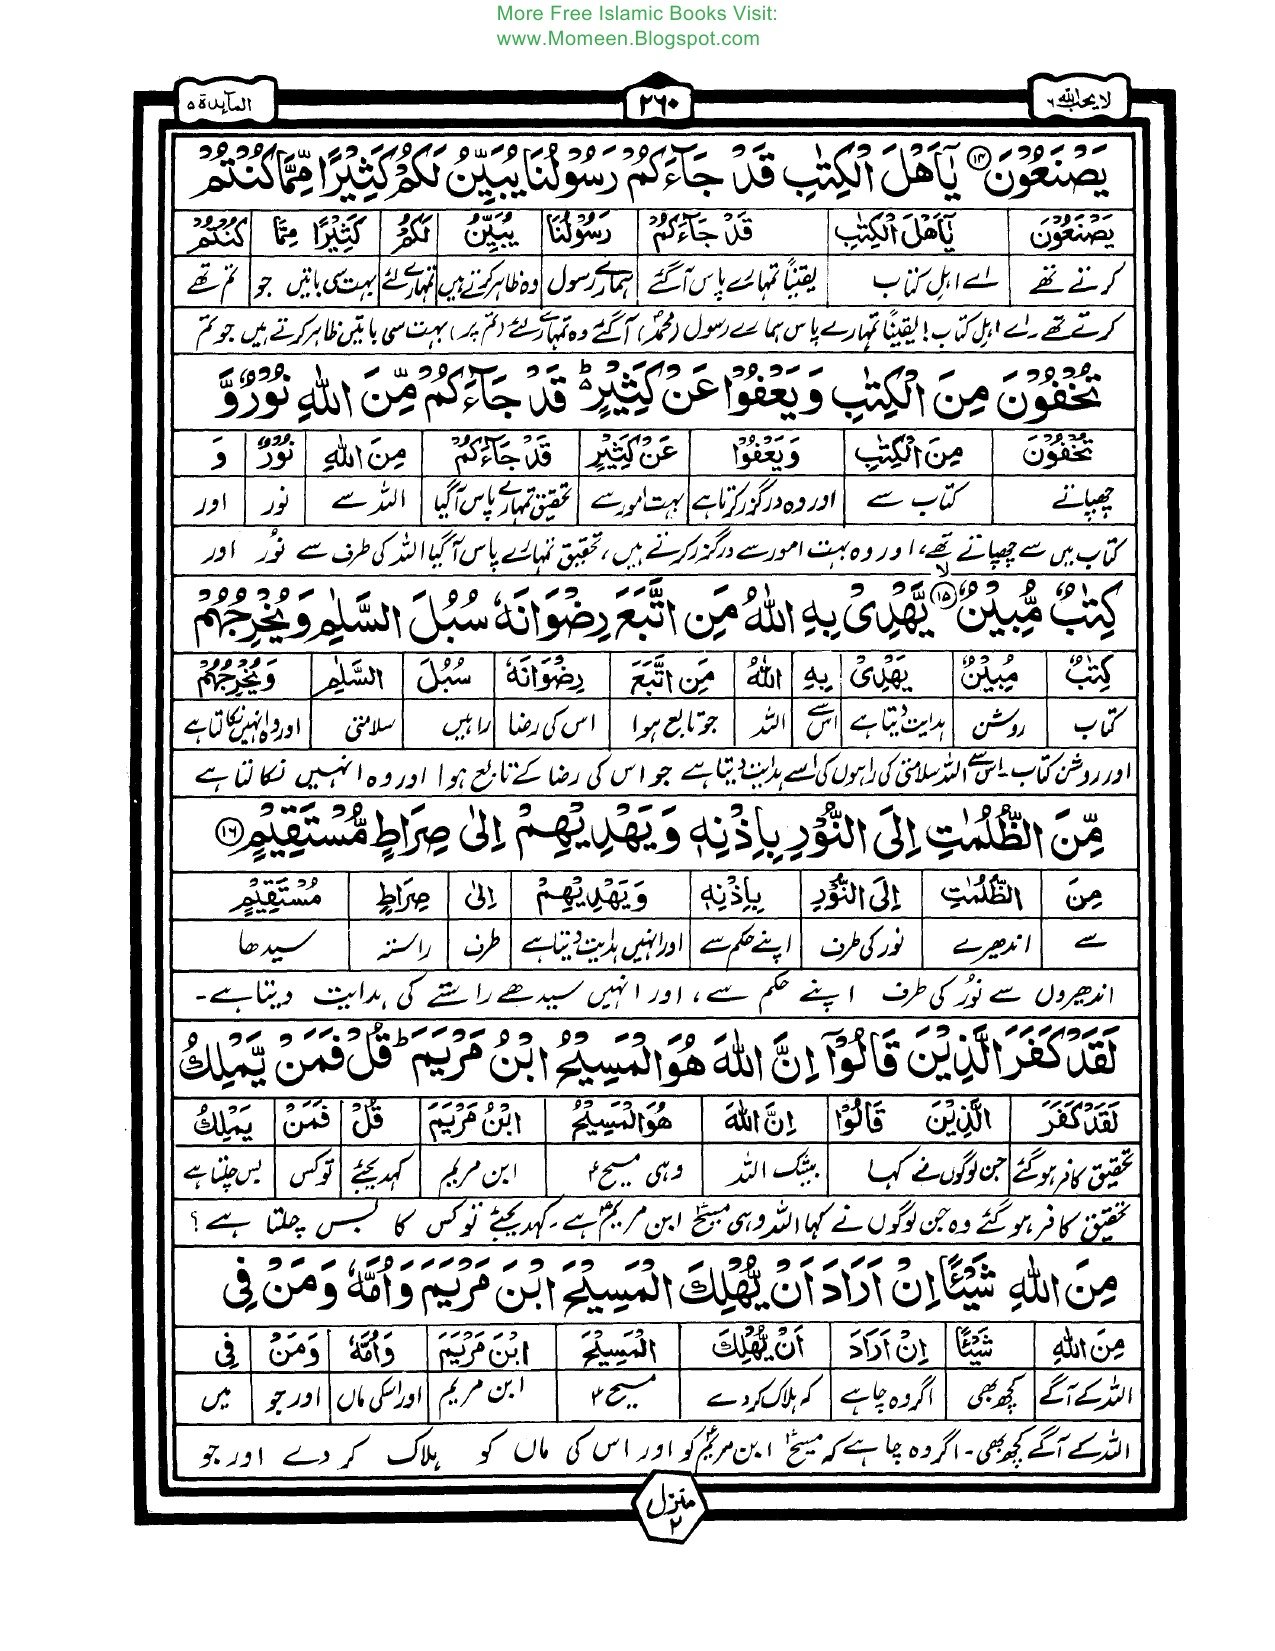 More Free Islamic Books Visit:
www.Momeen.Blogspot.com
لا یحب الله ۶
۲۶۰
المآىِٕدة ۵
يَصْنَعُوْنَ ﴿۱۴﴾ يٰۤاَهْلَ الْكِتٰبِ قَدْ جَآءَكُمْ رَسُوْلُنَا يُبَيِّنُ لَكُمْ كَثِيْرًا مِّمَّا كُنْتُمْ
يَصْنَعُوْنَ يٰۤاَهْلَ الْكِتٰبِ قَدْ جَآءَكُمْ رَسُوْلُنَا يُبَيِّنُ لَكُمْ كَثِيْرًا مِّمَّا كُنْتُمْ
کرتے تھے اے اہلِ کتاب یقیناً تمہارے پاس آگئے ہمارے رسول وہ ظاہر کرتے ہیں تمہارے لئے بہت سی باتیں جو تم تھے
کرتے تھے۔ اے اہلِ کتاب! یقیناً تمہارے پاس ہمارے رسول (محمدؐ) آگئے وہ تمہارے لئے (تم پر) بہت سی باتیں ظاہر کرتے ہیں جو تم
تُخْفُوْنَ مِنَ الْكِتٰبِ وَيَعْفُوْا عَنْ كَثِيْرٍ ؕ قَدْ جَآءَكُمْ مِّنَ اللّٰهِ نُوْرٌ وَّ
تُخْفُوْنَ مِنَ الْكِتٰبِ وَيَعْفُوْا عَنْ كَثِيْرٍ قَدْ جَآءَكُمْ مِنَ اللّٰهِ نُوْرٌ وَ
چھپاتے کتاب سے اور وہ درگزر کرتا ہے بہت امور سے تحقیق تمہارے پاس آگیا اللہ سے نور اور
کتاب میں سے چھپاتے تھے، اور وہ بہت امور سے درگزر کرتے ہیں، تحقیق تمہارے پاس آگیا اللہ کی طرف سے نُور اور
كِتٰبٌ مُّبِيْنٌ ﴿۱۵﴾ۙ يَّهْدِيْ بِهِ اللّٰهُ مَنِ اتَّبَعَ رِضْوَانَهٗ سُبُلَ السَّلٰمِ وَيُخْرِجُهُمْ
كِتٰبٌ مُبِيْنٌ يَهْدِيْ بِهِ اللّٰهُ مَنِ اتَّبَعَ رِضْوَانَهٗ سُبُلَ السَّلٰمِ وَيُخْرِجُهُمْ
کتاب روشن ہدایت دیتا ہے اس سے اللہ جو تابع ہوا اس کی رضا راہیں سلامتی اور وہ انہیں نکالتا ہے
اور روشن کتاب۔ اس سے اللہ سلامتی کی راہوں کی اسے ہدایت دیتا ہے جو اس کی رضا کے تابع ہوا اور وہ انہیں نکالتا ہے
مِّنَ الظُّلُمٰتِ اِلَى النُّوْرِ بِاِذْنِهٖ وَيَهْدِيْهِمْ اِلٰى صِرَاطٍ مُّسْتَقِيْمٍ ﴿۱۶﴾
مِنَ الظُّلُمٰتِ اِلَى النُّوْرِ بِاِذْنِهٖ وَيَهْدِيْهِمْ اِلٰى صِرَاطٍ مُسْتَقِيْمٍ
سے اندھیرے نور کی طرف اپنے حکم سے اور انہیں ہدایت دیتا ہے طرف راستہ سیدھا
اندھیروں سے نُور کی طرف اپنے حکم سے، اور انہیں سیدھے راستے کی ہدایت دیتا ہے۔
لَقَدْ كَفَرَ الَّذِيْنَ قَالُوْۤا اِنَّ اللّٰهَ هُوَ الْمَسِيْحُ ابْنُ مَرْيَمَ ؕ قُلْ فَمَنْ يَّمْلِكُ
لَقَدْ كَفَرَ الَّذِيْنَ قَالُوْۤا اِنَّ اللّٰهَ هُوَ الْمَسِيْحُ ابْنُ مَرْيَمَ قُلْ فَمَنْ يَمْلِكُ
تحقیق کافر ہوگئے جن لوگوں نے کہا بیشک اللہ وہی مسیحؑ ابن مریم کہدیجئے تو کس بس چلتا ہے
تحقیق کافر ہوگئے وہ جن لوگوں نے کہا اللہ وہی مسیحؑ ابن مریمؑ ہے۔ کہدیجئے تو کس کا بس چلتا ہے؟
مِنَ اللّٰهِ شَيْـًٔا اِنْ اَرَادَ اَنْ يُّهْلِكَ الْمَسِيْحَ ابْنَ مَرْيَمَ وَاُمَّهٗ وَمَنْ فِي
مِنَ اللّٰهِ شَيْـًٔا اِنْ اَرَادَ اَنْ يُّهْلِكَ الْمَسِيْحَ ابْنَ مَرْيَمَ وَاُمَّهٗ وَمَنْ فِي
اللہ کے آگے کچھ بھی اگر وہ چاہے کہ ہلاک کردے مسیحؑ ابن مریم اور اسکی ماں اور جو میں
اللہ کے آگے کچھ بھی۔ اگر وہ چاہے کہ مسیحؑ ابن مریمؑ کو اور اس کی ماں کو ہلاک کر دے اور جو
منزل ۲